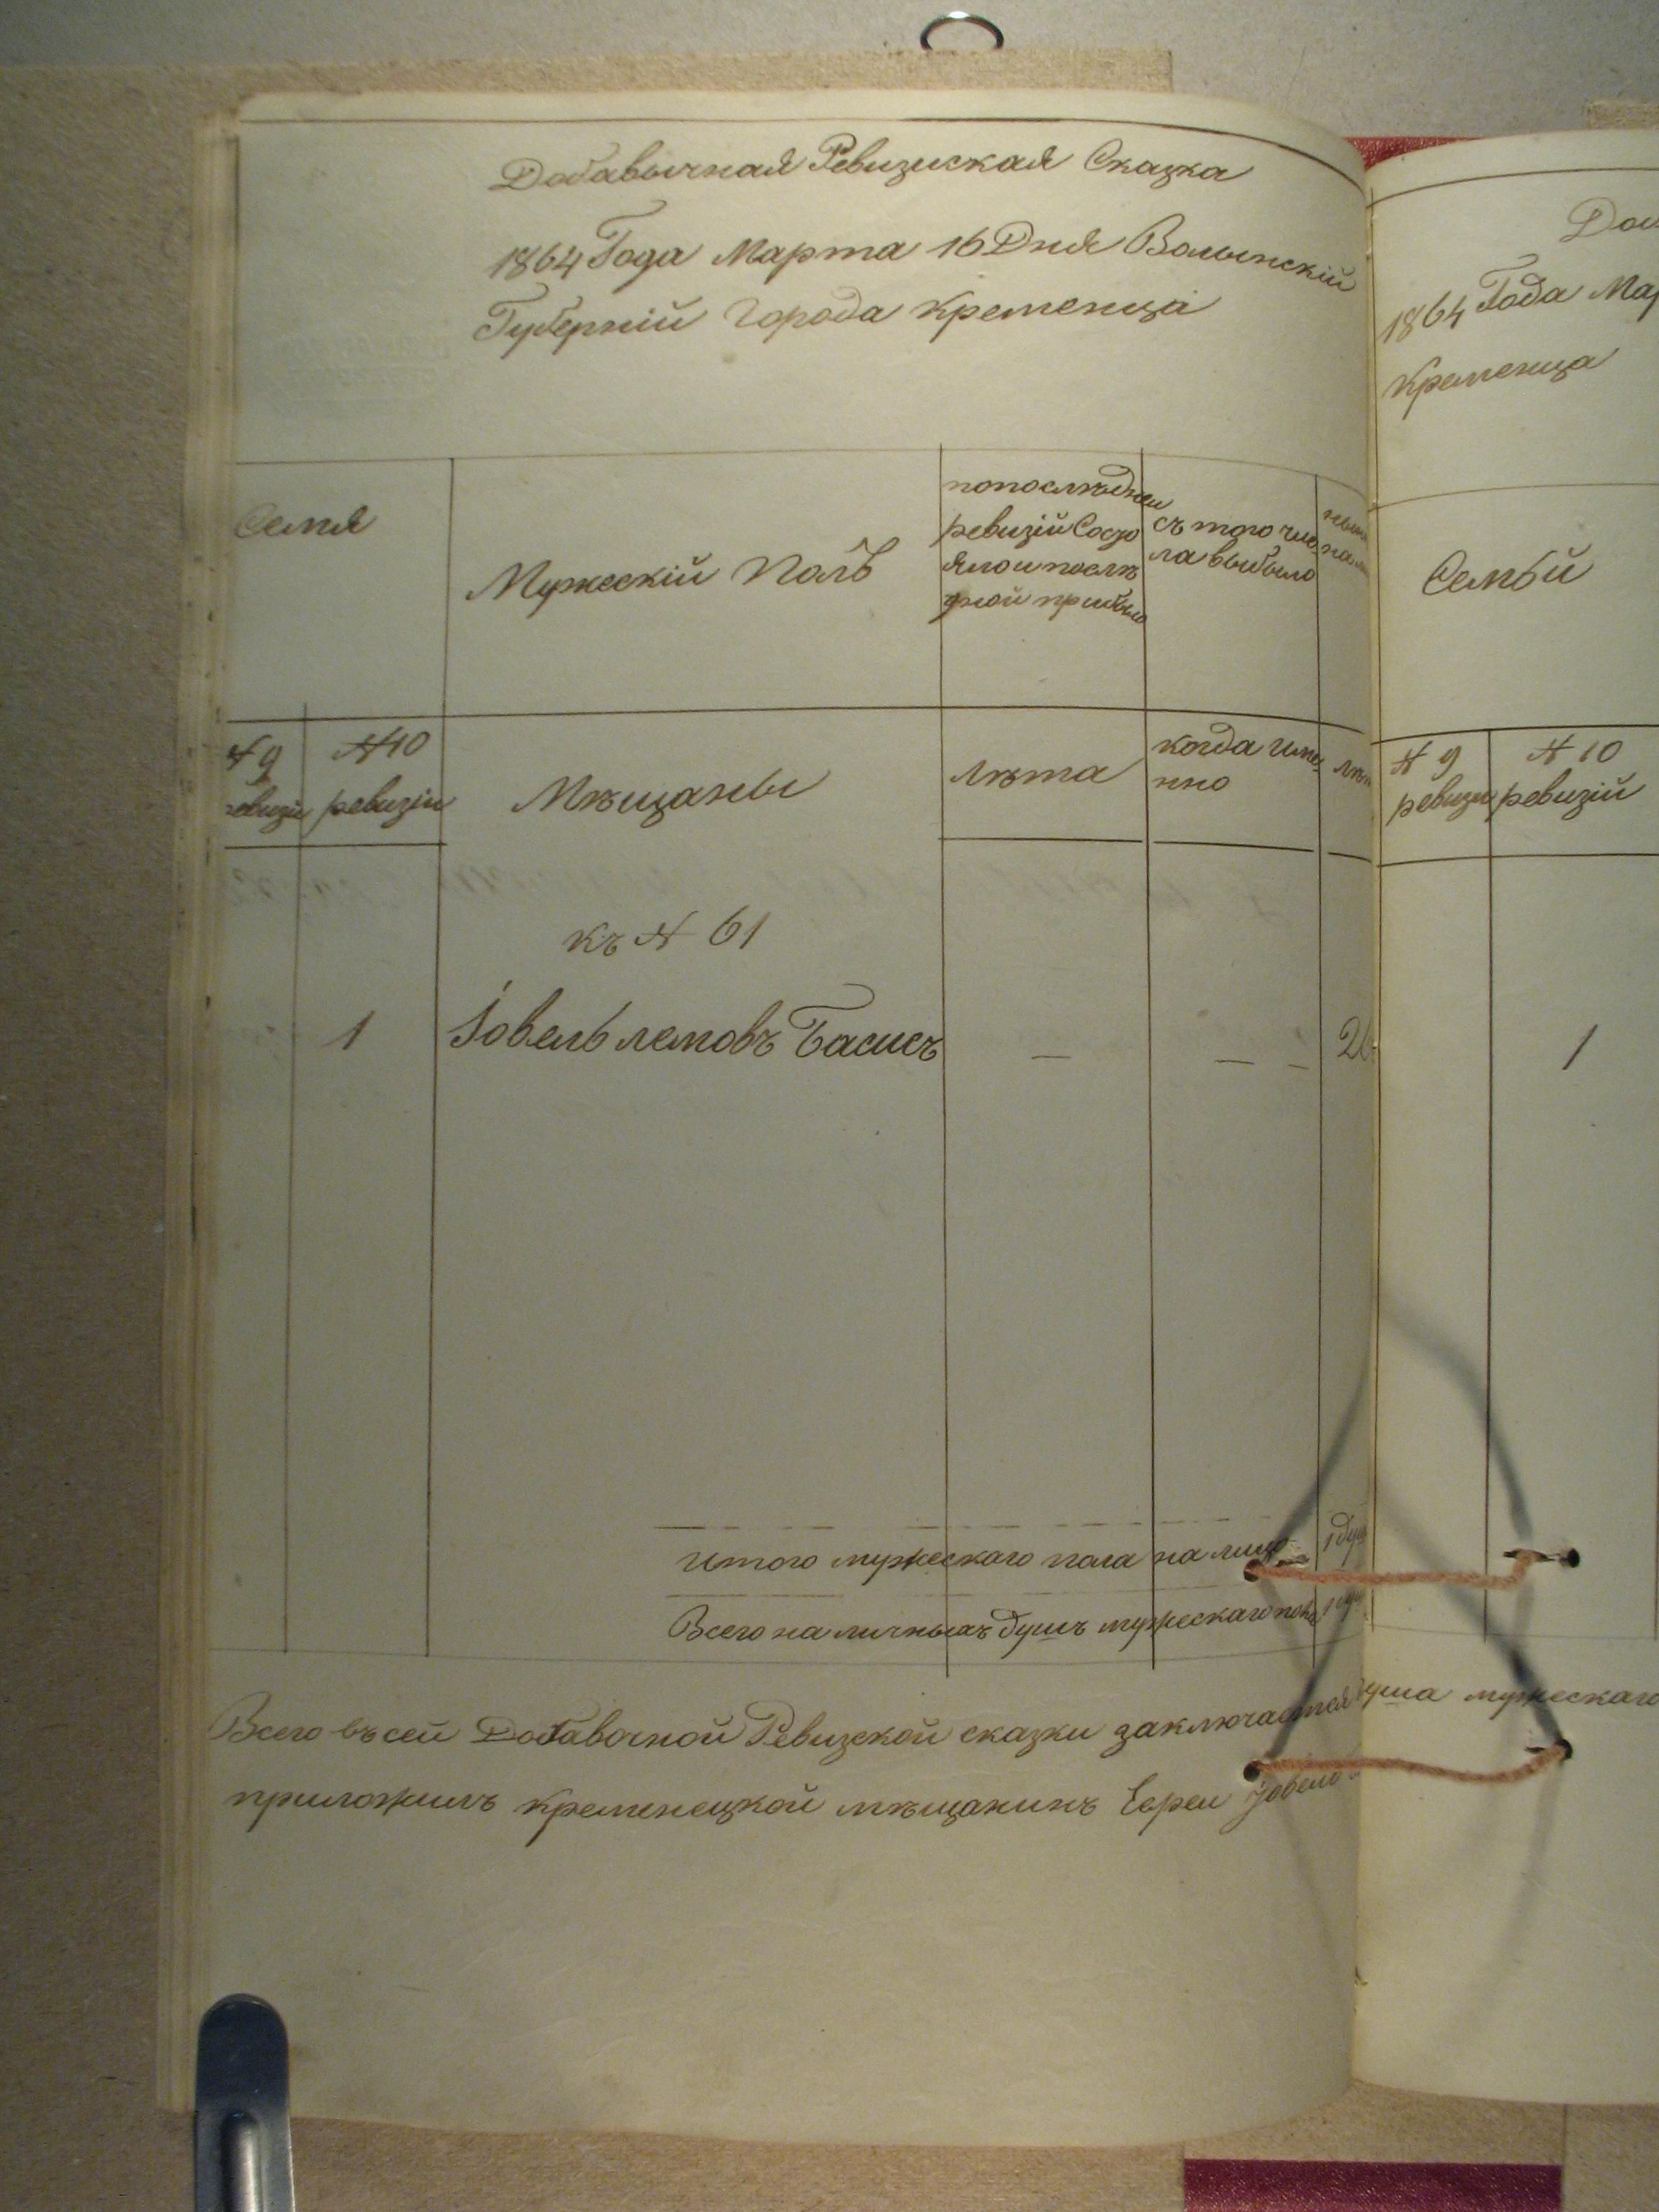 Добавычная Ревизиская Сказка
1864 Года Марта 16 Дня Волынскій
Губерніи Города Кременца
Семя
Мужескій Полъ
попослѣднеи
ревизій Состо
яло и послѣ
дной прибыло
съ того чис
ла выбыло
№ 9
ревизіи
№ 10
ревизіи
Мѣщаны
Лѣта
когда име
нно
Лѣт
къ № 61
1 Іовель лемовъ Басисъ — — 26
Итого мужескаго пола на лицо 1 душ
Всего на личныхъ душъ мужескаго пола 1
Всего въ сей Добавочной Ревизской сказки заключается душа мужескаго
приложилъ Кременецкой мѣщанинъ Евреи
1864 Года Мар
Кременца
Семьй
№ 9
ревизи
№ 10
ревизій
1